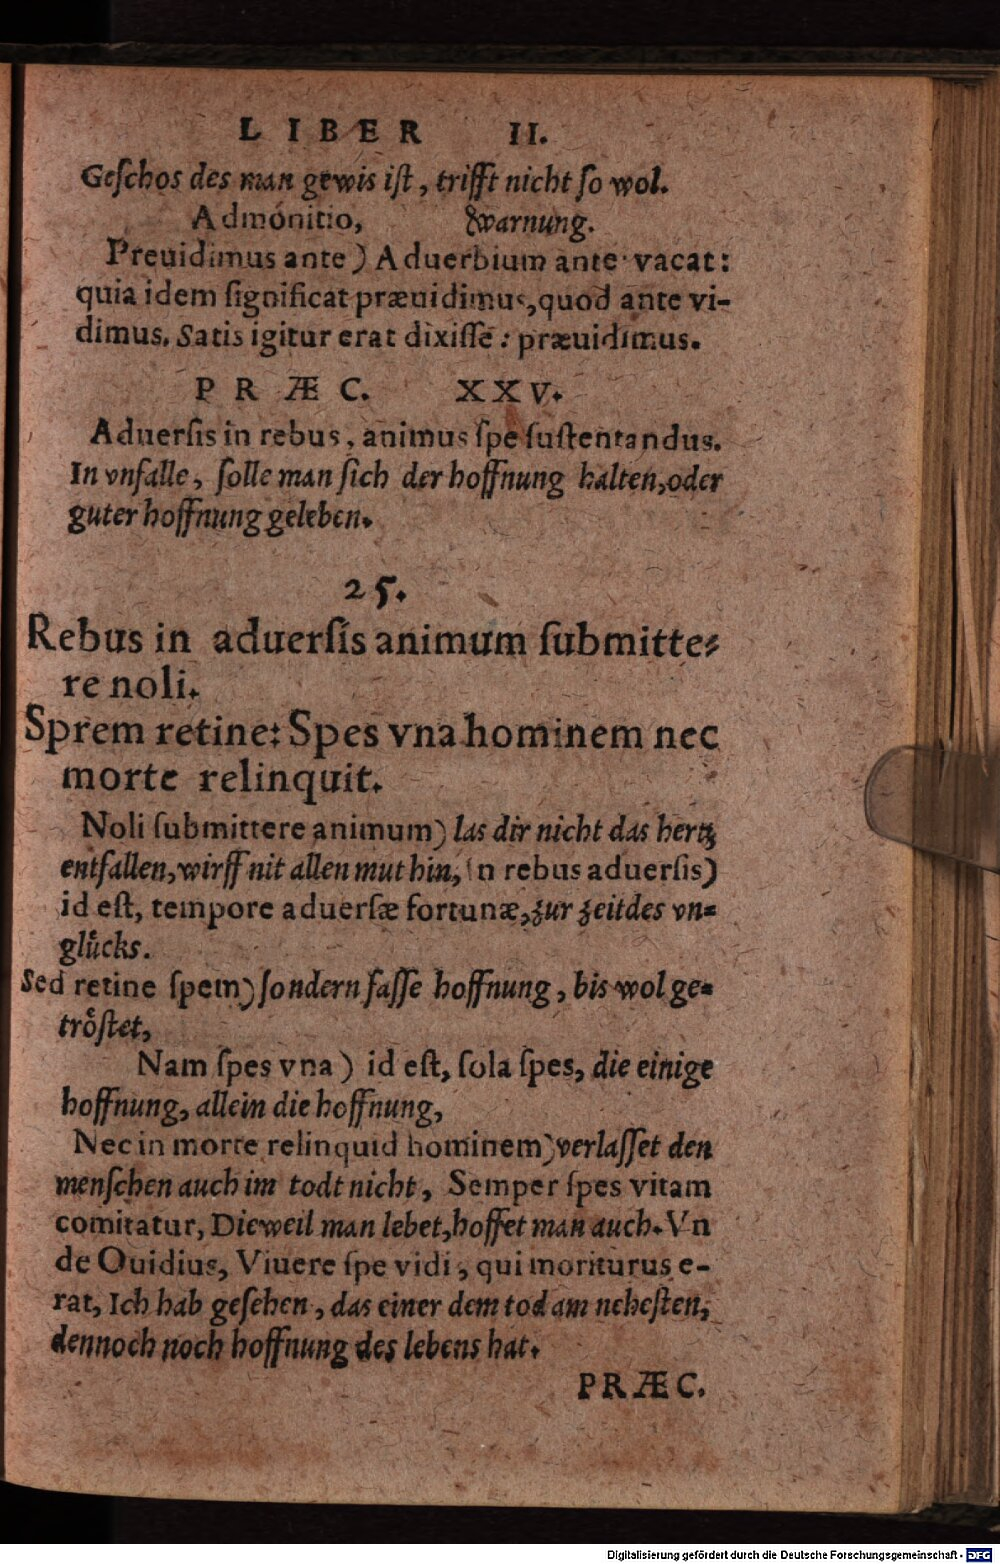 LIBER II.
Geſchos des man gewis iſt, trifft nicht ſo wol.
Admonitio, Warnung.
Preuidimus ante) Aduerbium ante vacat:
quia idem ſignificat præuidimus, quod ante vi-
dimus. Satis igitur erat dixiſſe: præuidimus.
PRÆC. XXV.
Aduerſis in rebus, animus ſpe ſuſtentandus.
In vnfalle, ſolle man ſich der hoffnung halten, oder
guter hoffnung geleben.
25.
Rebus in aduerſis animum ſubmitte⸗
re noli.
Sprem retine: Spes vna hominem nec
morte relinquit.
Noli ſubmittere animum) las dir nicht das hertz
entfallen, wirff nit allen mut hin, in rebus aduerſis)
id eſt, tempore aduerſæ fortunæ, zur zeit des vn⸗
glůcks.
Sed retine ſpem) ſondern faſſe hoffnung, bis wol ge⸗
trôſtet,
Nam ſpes vna) id eſt, ſola ſpes, die einige
hoffnung, allein die hoffnung,
Nec in morte relinquid hominem) verlaſſet den
menſchen auch im todt nicht, Semper ſpes vitam
comitatur, Dieweil man lebet, hoffet man auch. Vn
de Ouidius, Viuere ſpe vidi, qui moriturus e-
rat, Ich hab geſehen, das einer dem tod am neheſten,
dennoch noch hoffnung des lebens hat.
PRÆC.
Digitalisierung gefördert durch die Deutsche Forschungsgemeinschaft - DFG